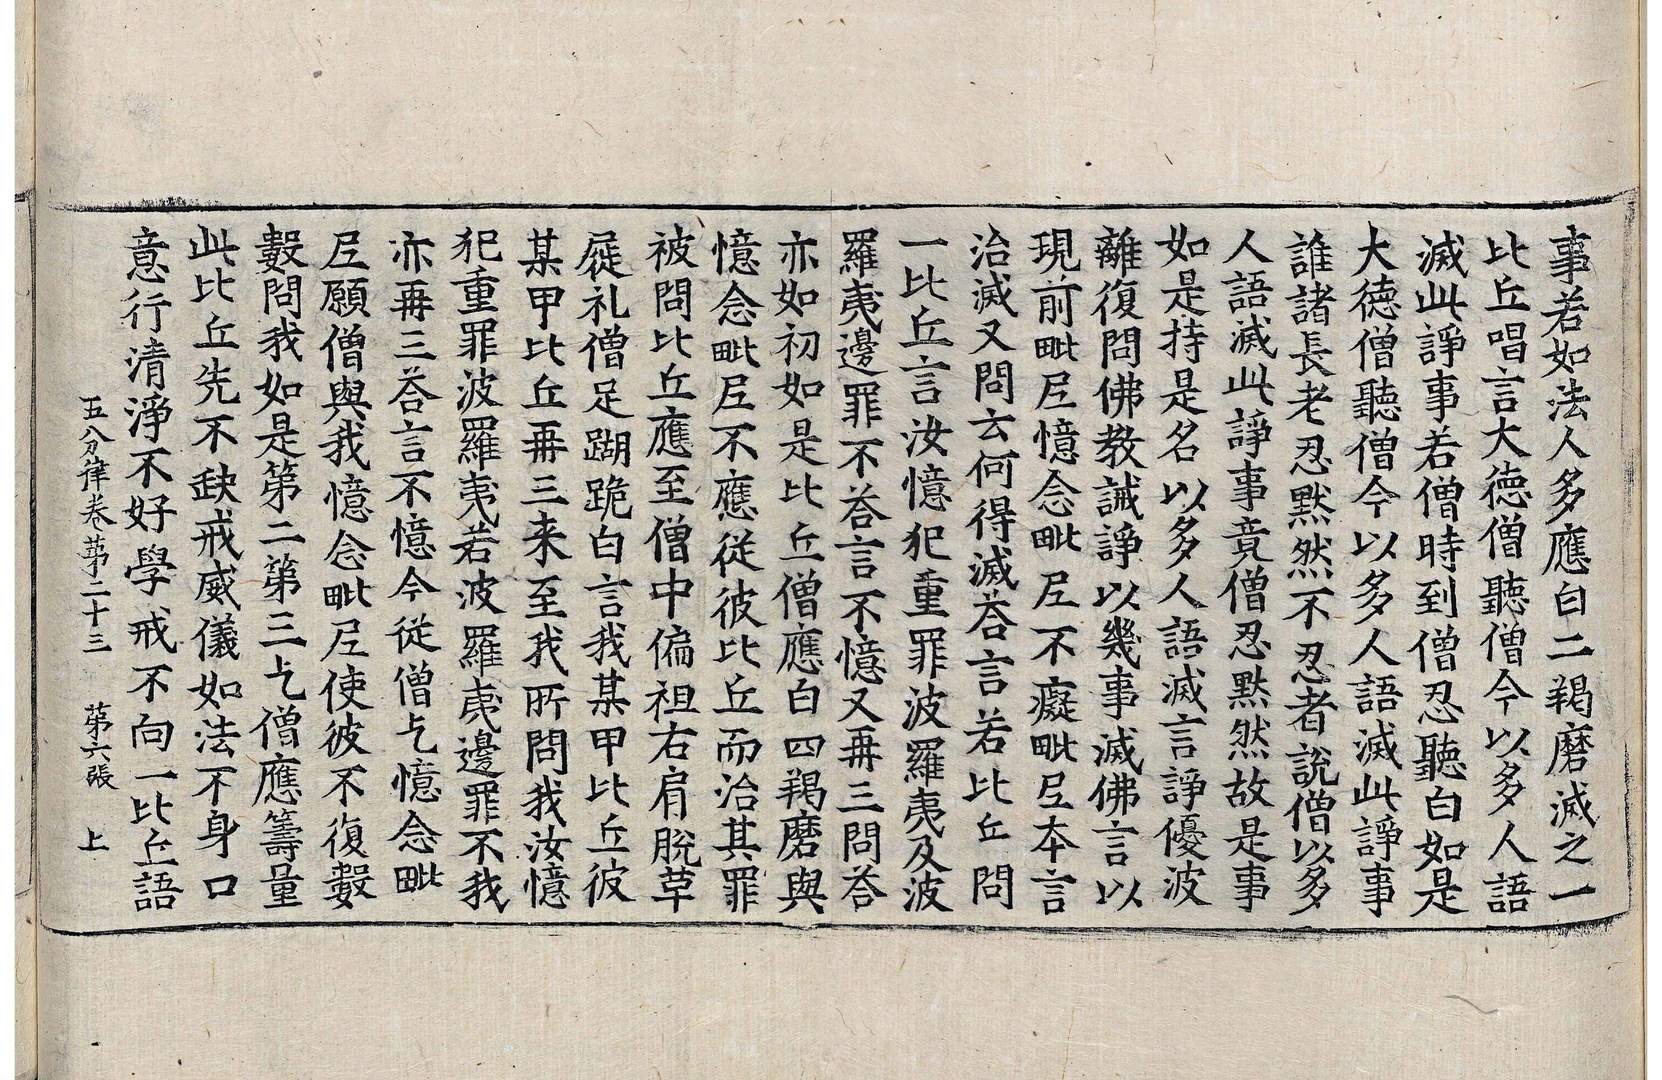 事若如法人多應白二羯磨滅之一
比丘唱言大德僧聽僧今以多人語
滅此諍事若僧時到僧忍聽白如是
大德僧聽僧今以多人語滅此諍事
誰諸長老忍默然不忍者說僧以多
人語滅此諍事竟僧忍默然故是事
如是持是名以多人語滅言諍優波
離復問佛教誡諍以幾事滅佛言以
現前毗尼憶念毗尼不癡毗尼本言
治滅又問云何得滅荅言若比丘問
一比丘言汝憶犯重罪波羅夷及波
羅夷邊罪不荅言不憶又再三問荅
亦如初如是比丘僧應白四羯磨與
憶念毗尼不應從彼比丘而治其罪
被問比丘應至僧中偏袒右肩脫草
屣礼僧足踟跪白言我某甲比丘彼
某甲比丘再三来至我所問我汝憶
犯重罪波羅夷若波羅夷邊罪不我
亦再三荅言不憶今從僧乞憶念毗
尼願僧與我憶念毗尼使彼不復數
數問我如是第二第三乞僧應籌量
此比丘先不缺戒威儀如法不身口
意行清淨不好學戒不向一比丘語
五分律卷苐二十三　苐六張　上